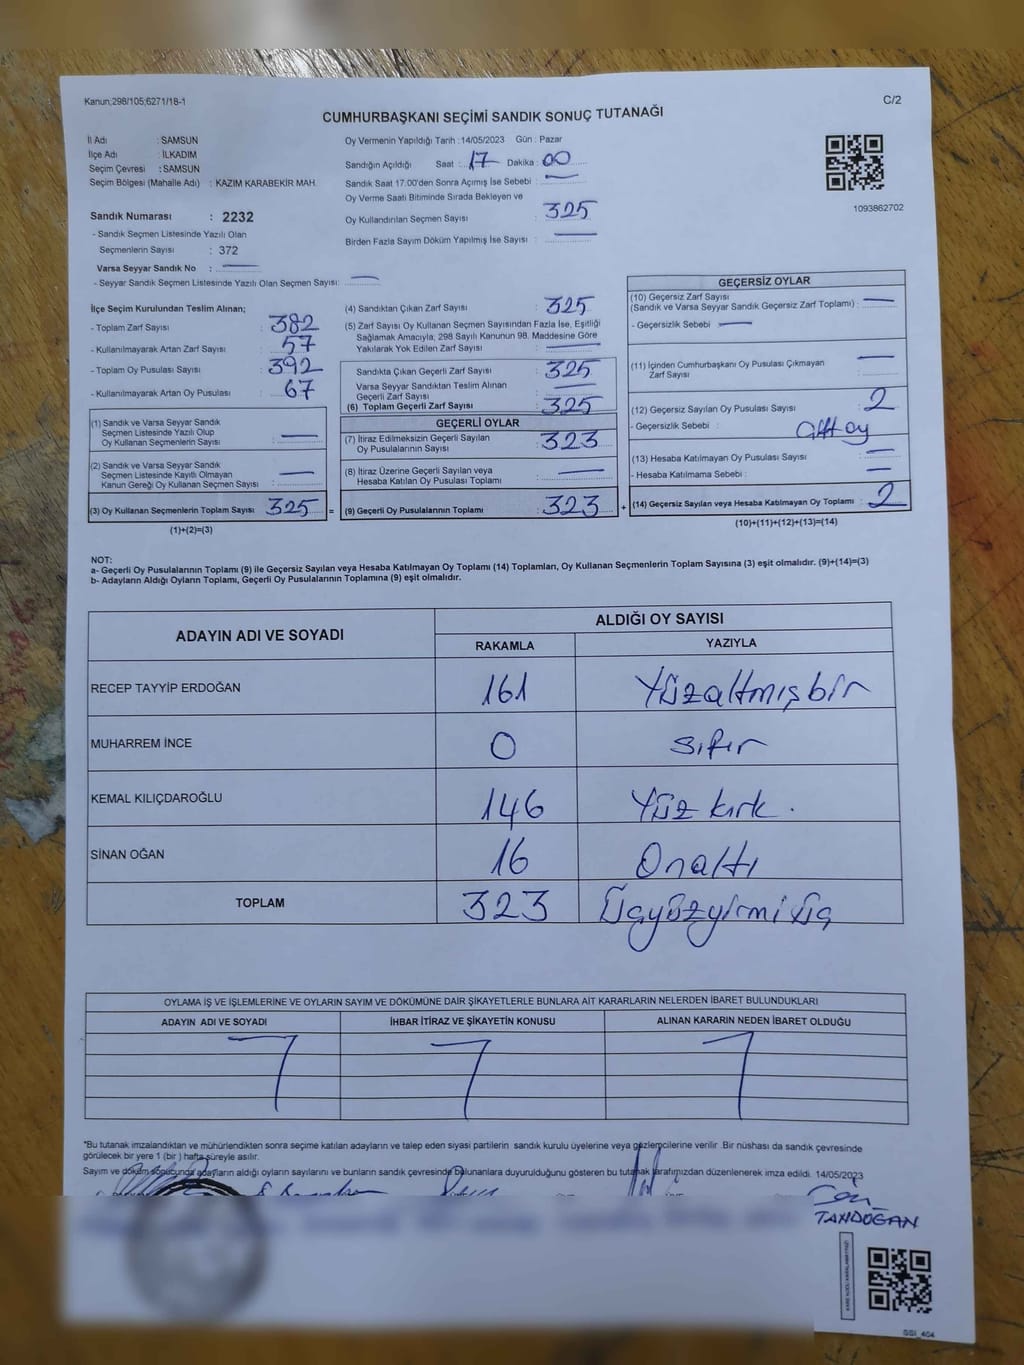 Kanun;298/105;6271/18-1
C/2
CUMHURBAŞKANI SEÇİMİ SANDIK SONUÇ TUTANAĞI
İl Adı : SAMSUN
İlçe Adı : İLKADIM
Seçim Çevresi : SAMSUN
Seçim Bölgesi (Mahalle Adı) : KAZIM KARABEKİR MAH.
Sandık Numarası : 2232
- Sandık Seçmen Listesinde Yazılı Olan
Seçmenlerin Sayısı : 372
Varsa Seyyar Sandık No :
- Seyyar Sandık Seçmen Listesinde Yazılı Olan Seçmen Sayısı:
Oy Vermenin Yapıldığı Tarih :14/05/2023 Gün : Pazar
Sandığın Açıldığı Saat : 17 Dakika : 00
Sandık Saat 17.00'den Sonra Açımış İse Sebebi :
Oy Verme Saati Bitiminde Sırada Bekleyen ve
Oy Kullandırılan Seçmen Sayısı : 325
Birden Fazla Sayım Döküm Yapılmış İse Sayısı :
1093862702
İlçe Seçim Kurulundan Teslim Alınan;
- Toplam Zarf Sayısı : 382
- Kullanılmayarak Artan Zarf Sayısı : 57
- Toplam Oy Pusulası Sayısı : 392
- Kullanılmayarak Artan Oy Pusulası : 67
(1) Sandık ve Varsa Seyyar Sandık
Seçmen Listesinde Yazılı Olup
Oy Kullanan Seçmenlerin Sayısı :
(2) Sandık ve Varsa Seyyar Sandık
Seçmen Listesinde Kayıtlı Olmayan
Kanun Gereği Oy Kullanan Seçmen Sayısı :
(3) Oy Kullanan Seçmenlerin Toplam Sayısı : 325 =
(1)+(2)=(3)
(4) Sandıktan Çıkan Zarf Sayısı : 325
(5) Zarf Sayısı Oy Kullanan Seçmen Sayısından Fazla İse, Eşitliği
Sağlamak Amacıyla; 298 Sayılı Kanunun 98. Maddesine Göre
Yakılarak Yok Edilen Zarf Sayısı :
Sandıkta Çıkan Geçerli Zarf Sayısı : 325
Varsa Seyyar Sandıktan Teslim Alınan
Geçerli Zarf Sayısı :
(6) Toplam Geçerli Zarf Sayısı : 325
GEÇERLİ OYLAR
(7) İtiraz Edilmeksizin Geçerli Sayılan
Oy Pusulalarının Sayısı : 323
(8) İtiraz Üzerine Geçerli Sayılan veya
Hesaba Katılan Oy Pusulası Toplamı :
(9) Geçerli Oy Pusulalarının Toplamı : 323 +
GEÇERSİZ OYLAR
(10) Geçersiz Zarf Sayısı
(Sandık ve Varsa Seyyar Sandık Geçersiz Zarf Toplamı) :
- Geçersizlik Sebebi :
(11) İçinden Cumhurbaşkanı Oy Pusulası Çıkmayan
Zarf Sayısı :
(12) Geçersiz Sayılan Oy Pusulası Sayısı : 2
- Geçersizlik Sebebi :
(13) Hesaba Katılmayan Oy Pusulası Sayısı :
- Hesaba Katılmama Sebebi :
(14) Geçersiz Sayılan veya Hesaba Katılmayan Oy Toplamı : 2
(10)+(11)+(12)+(13)=(14)
NOT:
a- Geçerli Oy Pusulalarının Toplamı (9) ile Geçersiz Sayılan veya Hesaba Katılmayan Oy Toplamı (14) Toplamları, Oy Kullanan Seçmenlerin Toplam Sayısına (3) eşit olmalıdır. (9)+(14)=(3)
b- Adayların Aldığı Oyların Toplamı, Geçerli Oy Pusulalarının Toplamına (9) eşit olmalıdır.
ADAYIN ADI VE SOYADI
ALDIĞI OY SAYISI
RAKAMLA YAZIYLA
RECEP TAYYİP ERDOĞAN 161 Yüzaltmışbir
MUHARREM İNCE 0 Sıfır
KEMAL KILIÇDAROĞLU 146 Yüz kırk.
SİNAN OĞAN 16 Onaltı
TOPLAM 323 Üçyüzyirmiüç
OYLAMA İŞ VE İŞLEMLERİNE VE OYLARIN SAYIM VE DÖKÜMÜNE DAİR ŞİKAYETLERLE BUNLARA AİT KARARLARIN NELERDEN İBARET BULUNDUKLARI
ADAYIN ADI VE SOYADI İHBAR İTİRAZ VE ŞİKAYETİN KONUSU ALINAN KARARIN NEDEN İBARET OLDUĞU
*Bu tutanak imzalandıktan ve mühürlendikten sonra seçime katılan adayların ve talep eden siyasi partilerin sandık kurulu üyelerine veya gözlemcilerine verilir .Bir nüshası da sandık çevresinde
görülecek bir yere 1 (bir ) hafta süreyle asılır.
Sayım ve döküm sonucunda adayların aldığı oyların sayılarını ve bunların sandık çevresinde bulunanlara duyurulduğunu gösteren bu tutanak tarafımızdan düzenlenerek imza edildi. 14/05/2023
TANDOĞAN
GSI_404